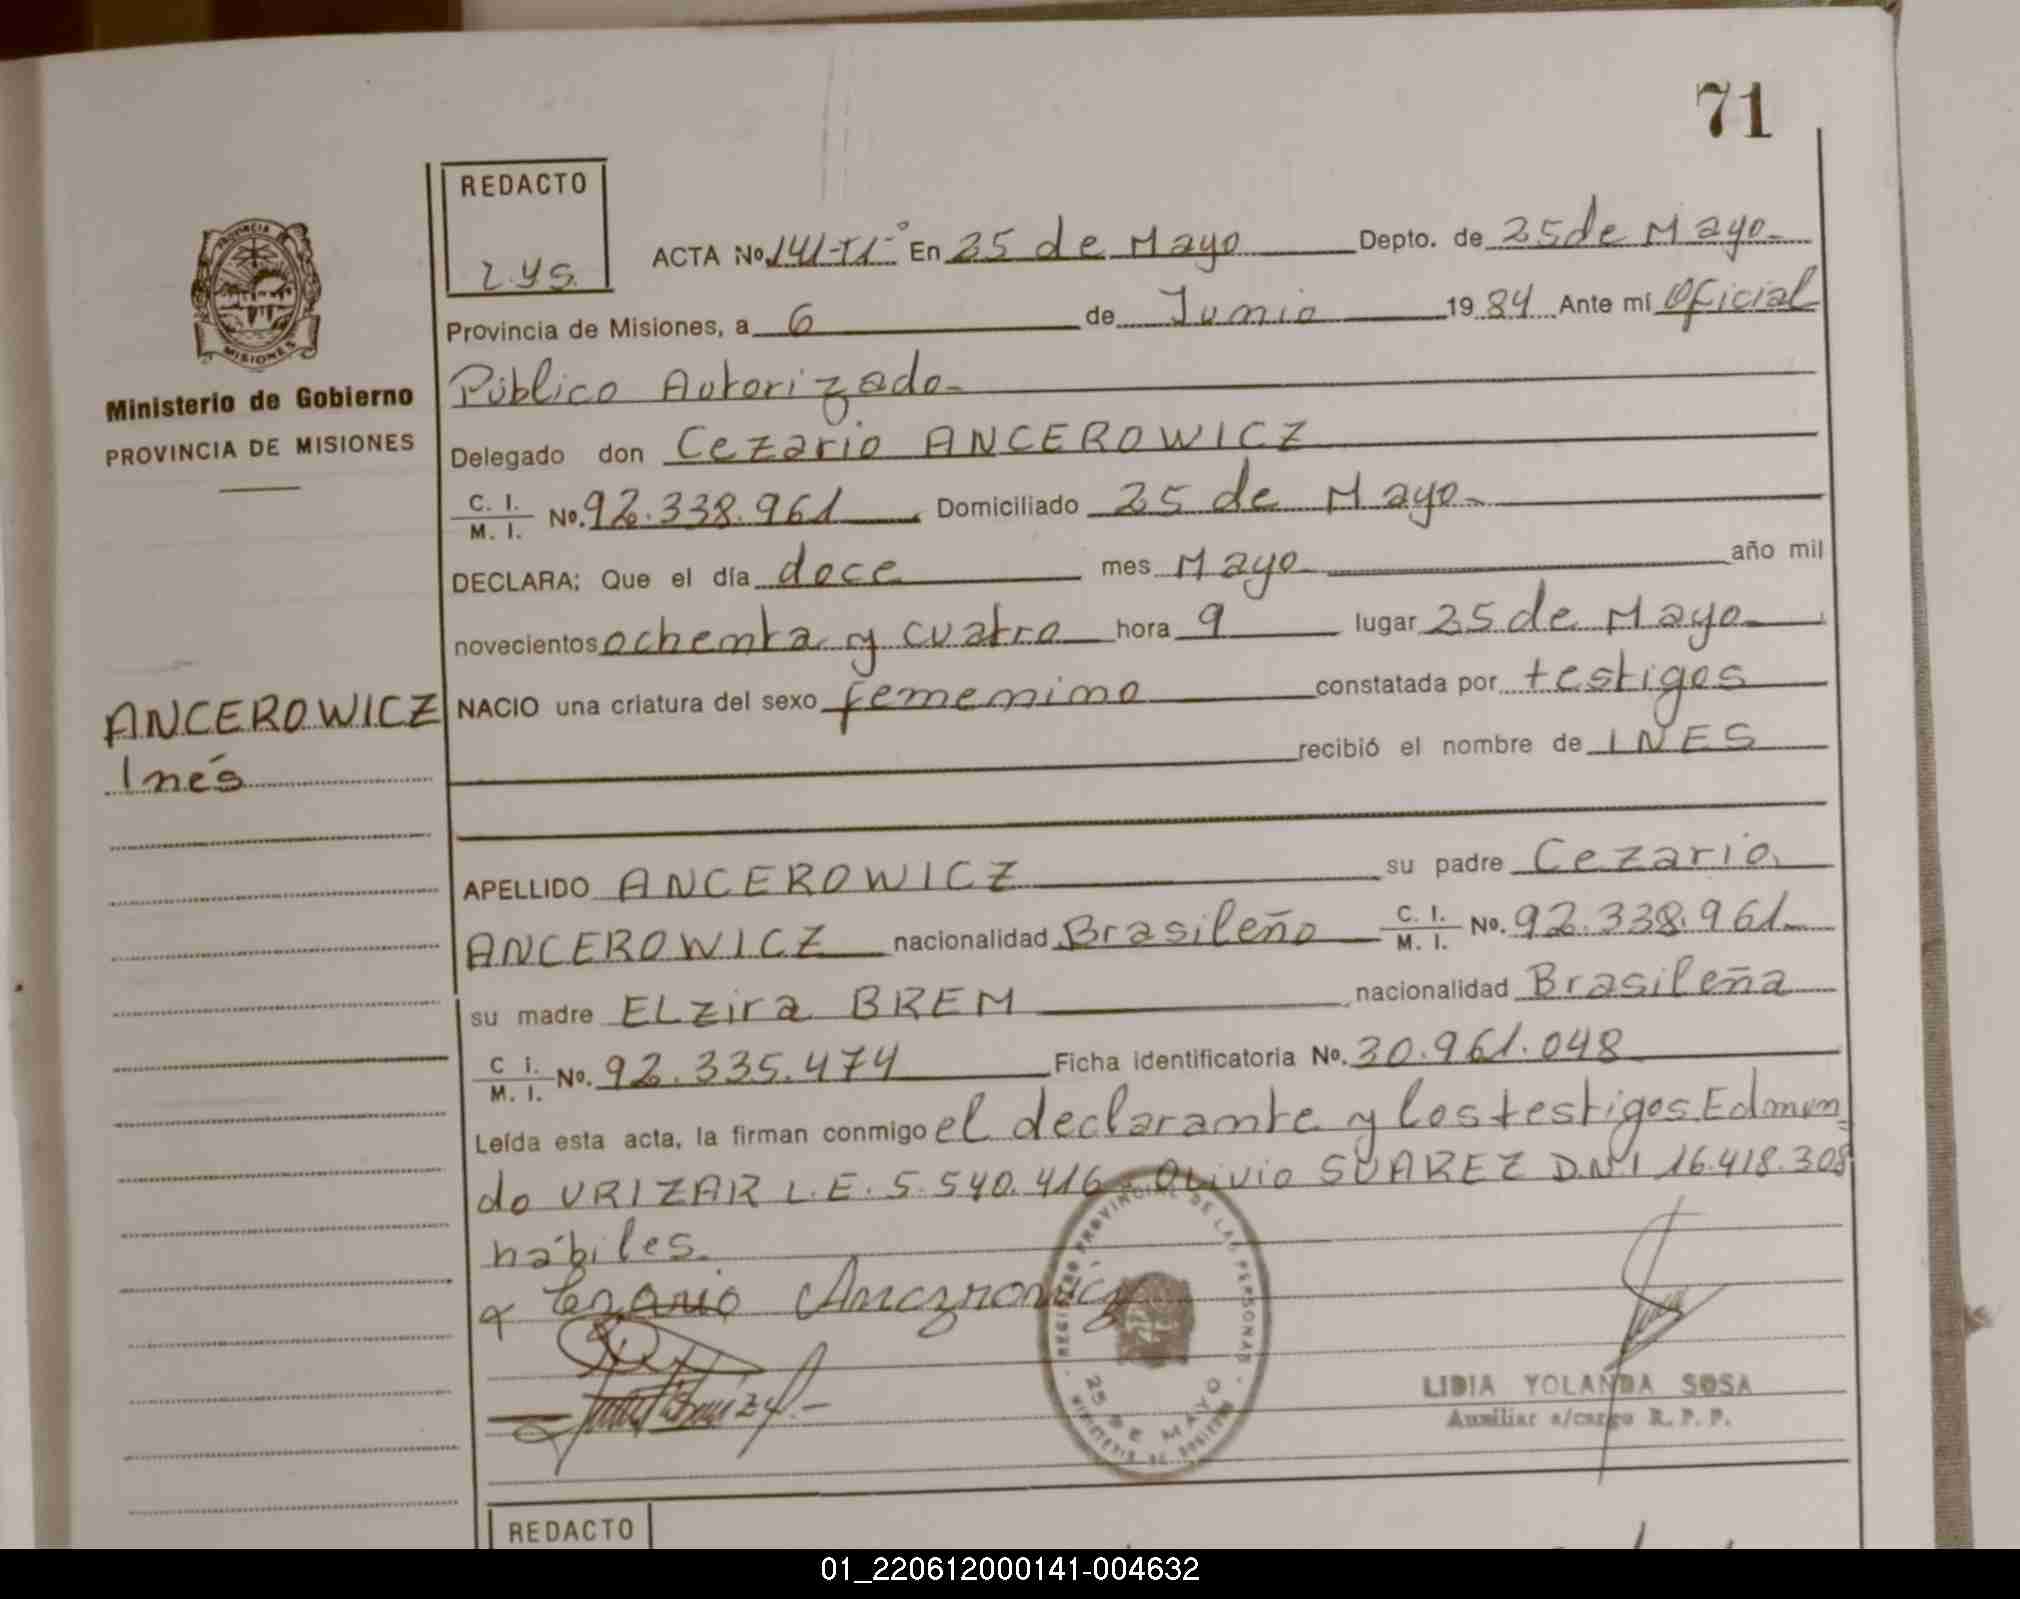 71
REDACTO
L.Y.S.
ACTA No 141-T1-° En 25 de Mayo Depto. de 25 de Mayo-
Provincia de Misiones, a 6 de Junio 1984 Ante mí Oficial
Público Autorizado-
PROVINCIA DE
MISIONES
Ministerio de Gobierno
PROVINCIA DE MISIONES
Delegado don Cezario ANCEROWICZ
C. I. / M. I. No. 92.338.961 Domiciliado 25 de Mayo-
DECLARA: Que el día doce mes Mayo año mil
novecientos ochenta y cuatro hora 9 lugar 25 de Mayo
ANCEROWICZ
Inés
NACIO una criatura del sexo femenino constatada por testigos
recibió el nombre de INES
APELLIDO ANCEROWICZ su padre Cezario
ANCEROWICZ nacionalidad Brasileño C. I. / M. I. No. 92.338.961
su madre ELzira BREM nacionalidad Brasileña
C I. / M. I. No. 92.335.474 Ficha identificatoria No. 30.961.048
Leída esta acta, la firman conmigo el declarante y los testigos Edmun=
do URIZAR L.E. 5.540.416 - OLivio SUAREZ D.N.I 16.418.308
hábiles.
Cezario
REGISTRO PROVINCIAL DE LAS PERSONAS
25 DE MAYO
MINISTERIO DE GOBIERNO
LIDIA YOLANDA SOSA
Auxiliar a/cargo R. P. P.
REDACTO
01_220612000141-004632